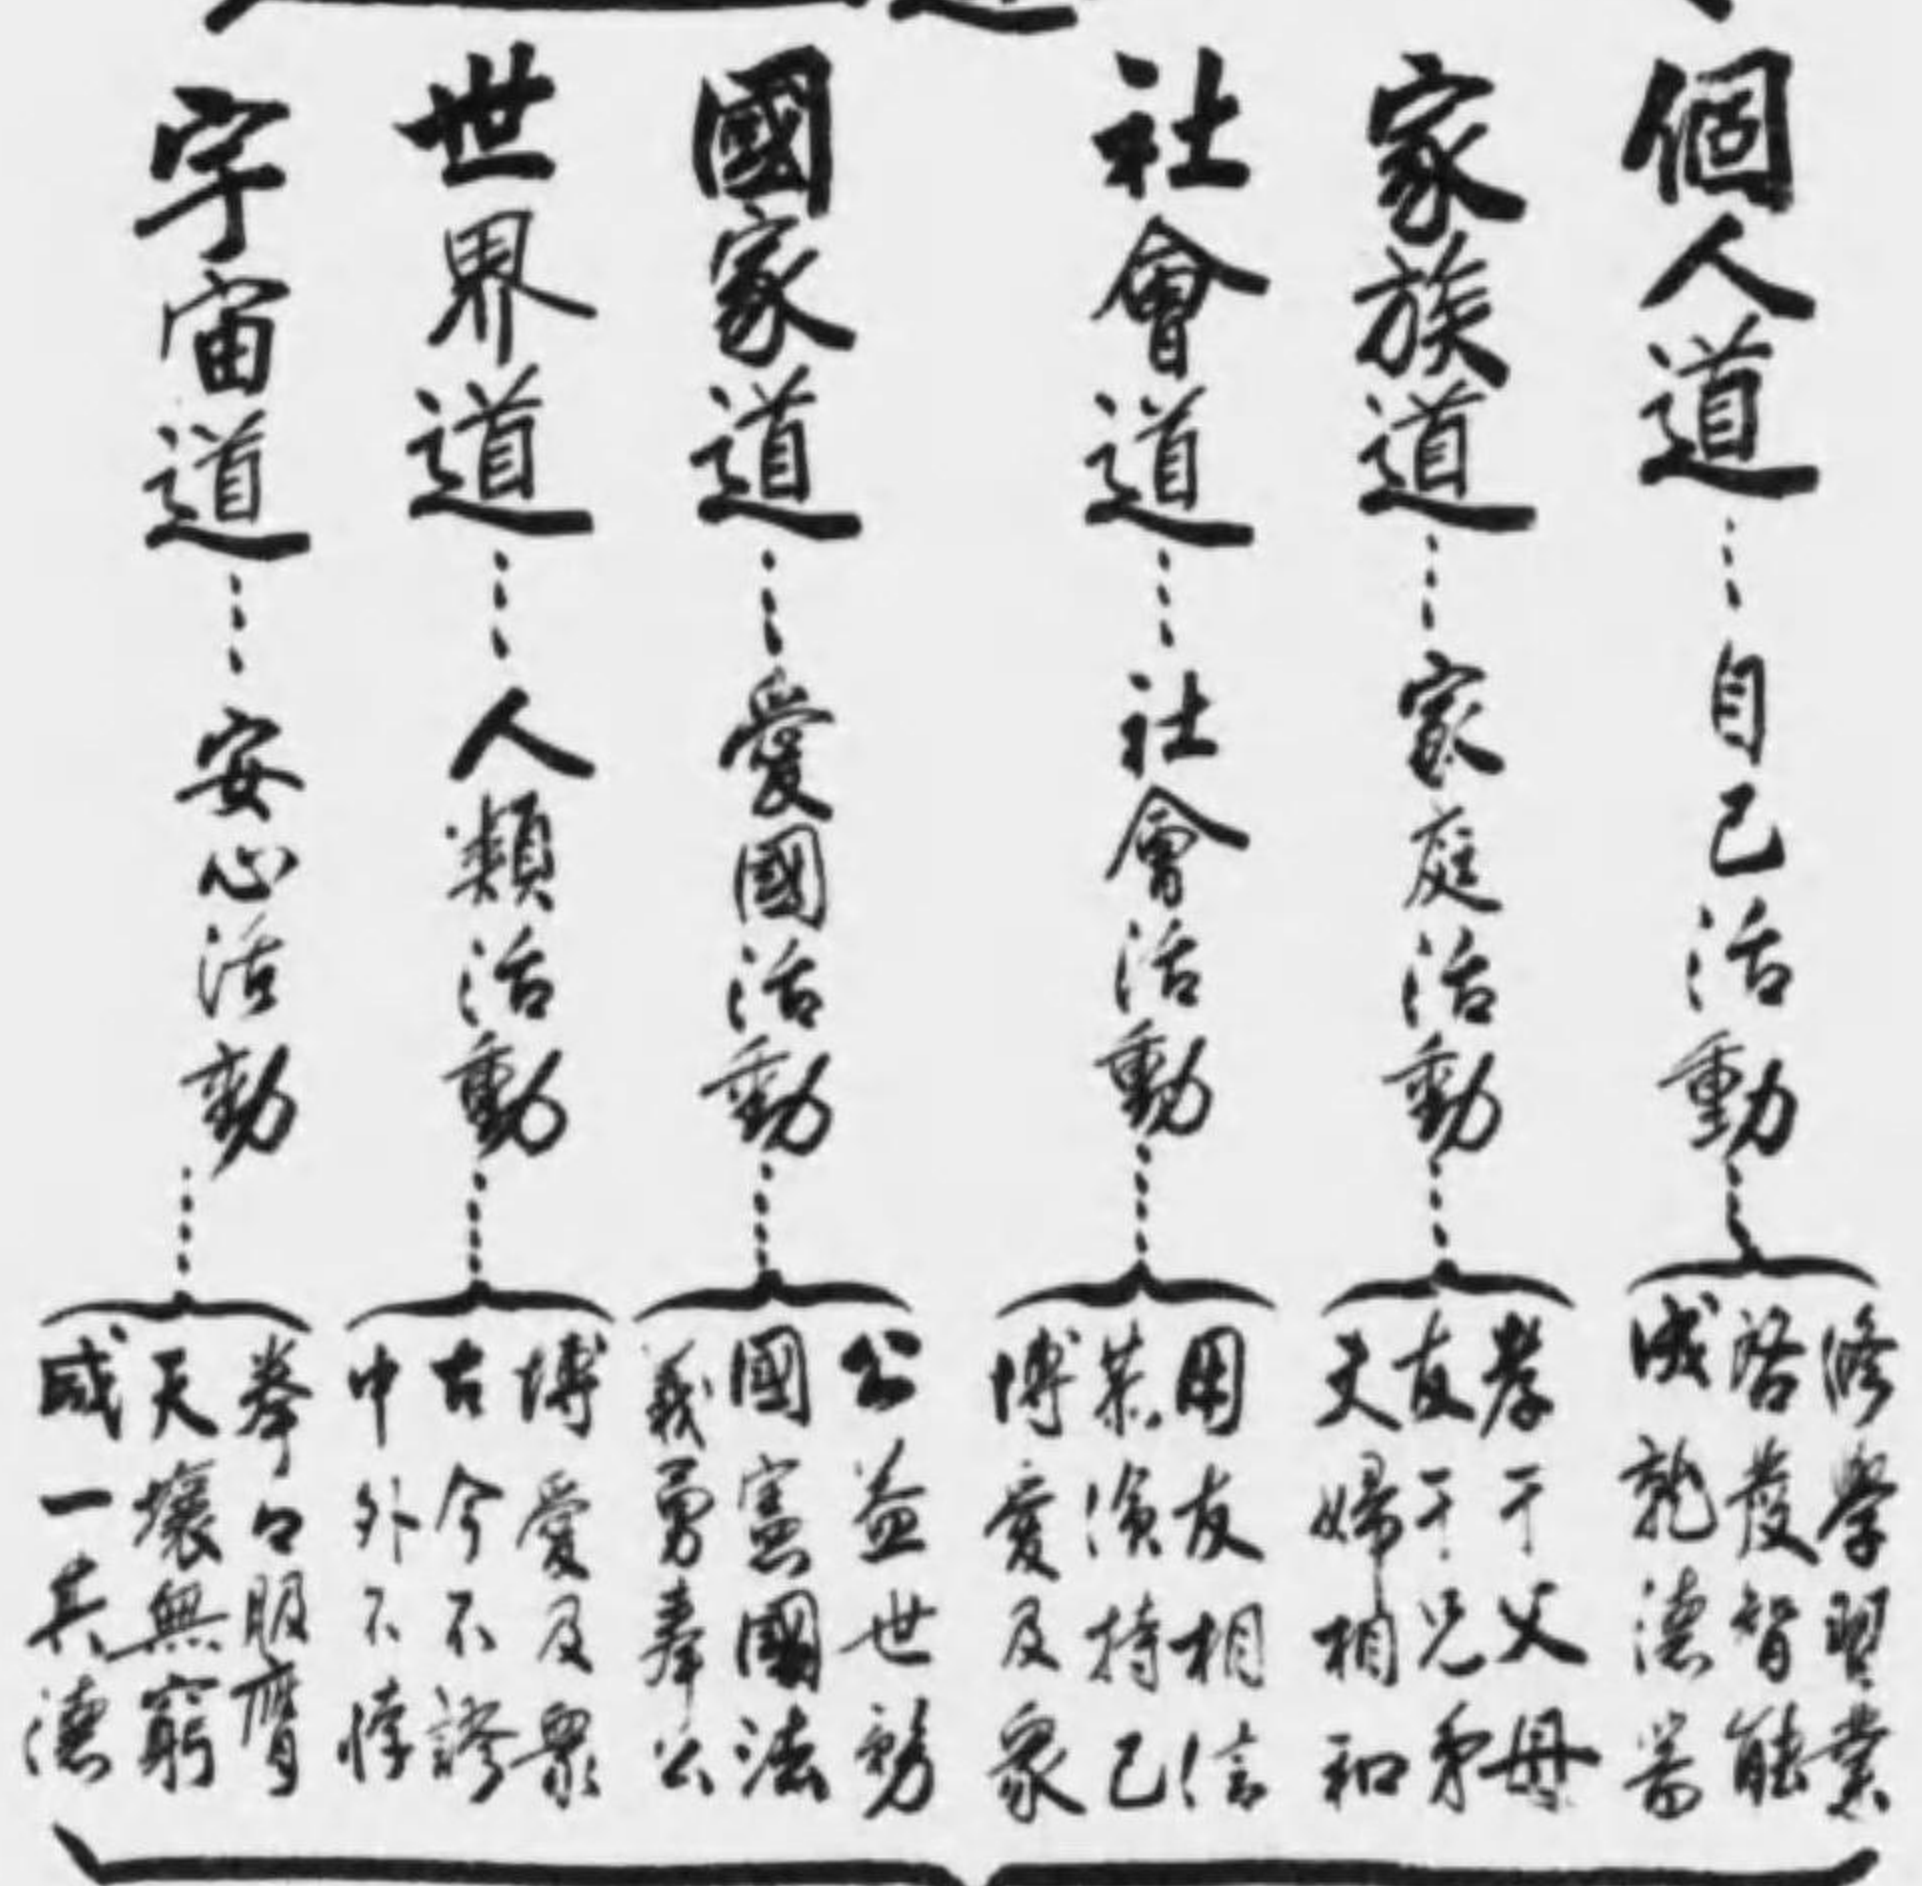 個人道…自己活動…
修學習業
啓發智能
成就德器
家族道…家庭活動…
孝于父母
友于兄弟
夫婦相和
社會道…社會活動…
朋友相信
恭儉持己
博愛及衆
國家道…愛國活動…
公益世務
國憲國法
義勇奉公
世界道…人類活動…
博愛及衆
古今不謬
中外不悖
宇宙道…安心活動…
拳々服膺
天壤無窮
咸一其德